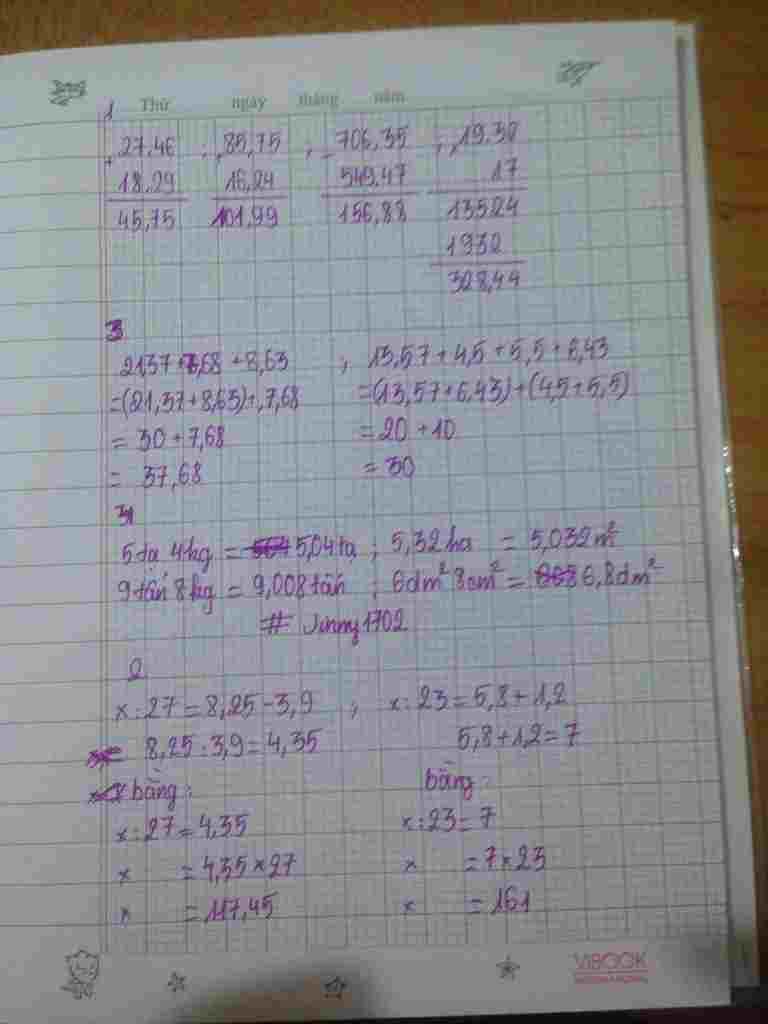 Thứ ngày tháng năm
1
+ 27,46 ; + 85,75 ; - 706,35 ; × 19,32
18,29 16,24 549,47 17
45,75 101,99 156,88 13524
1932
328,44
3
21,37 + 7,68 + 8,63 ; 13,57 + 4,5 + 5,5 + 6,43
= (21,37 + 8,63) + 7,68 = (13,57 + 6,43) + (4,5 + 5,5)
= 30 + 7,68 = 20 + 10
= 37,68 = 30
5 tạ 4 kg = 5,04 tạ ; 5,32 ha = 5,032 m²
9 tấn 8 kg = 9,008 tấn ; 6 dm² 8 cm² = 6,8 dm²
# Jinny1702
2
x : 27 = 8,25 - 3,9 ; x : 23 = 5,8 + 1,2
8,25 - 3,9 = 4,35 5,8 + 1,2 = 7
bằng: bằng:
x : 27 = 4,35 x : 23 = 7
x = 4,35 × 27 x = 7 × 23
x = 117,45 x = 161
ViBOOK